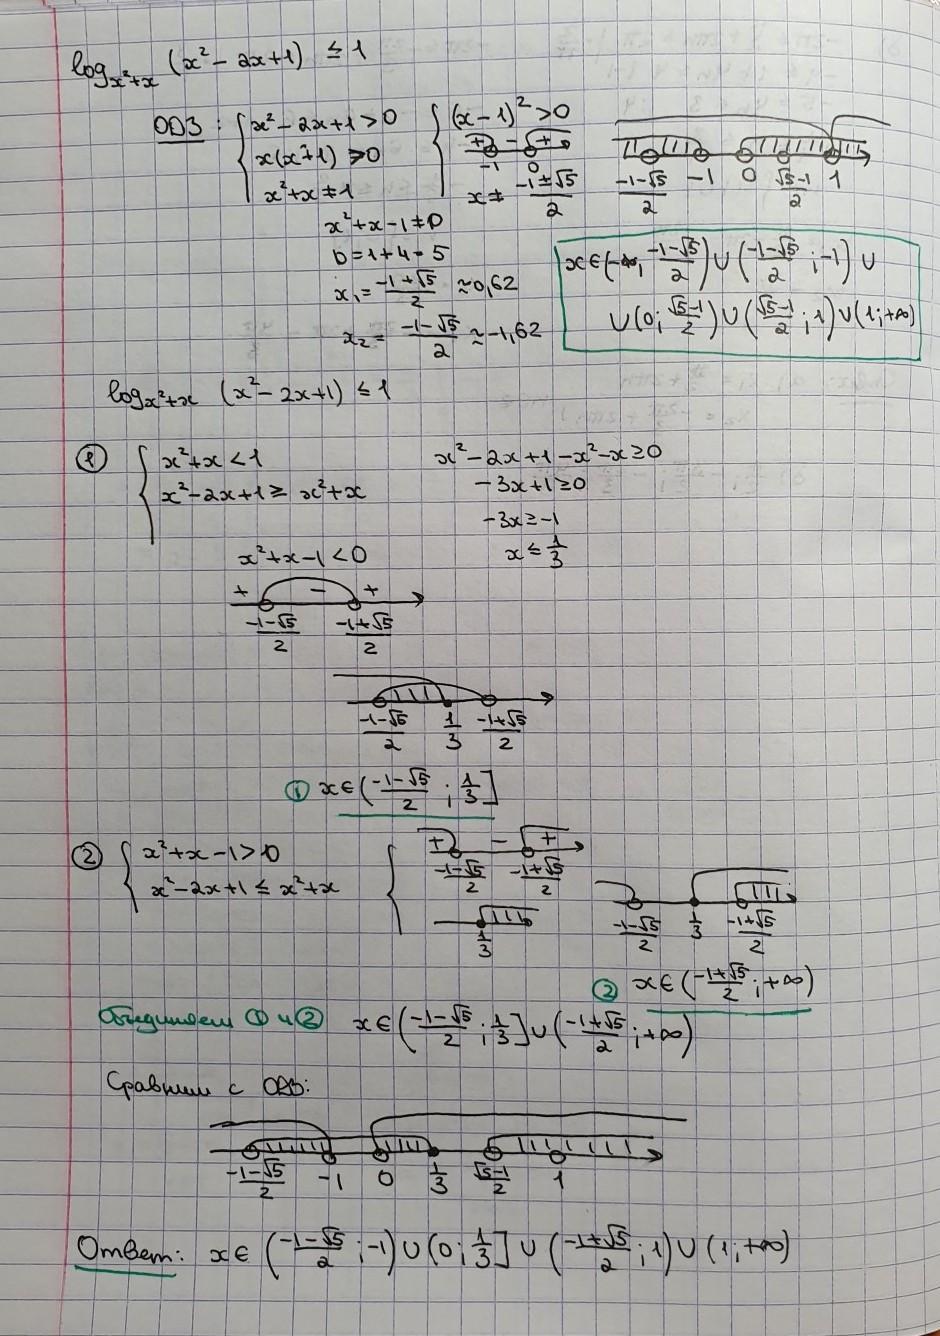 log_{x²+x} (x² - 2x + 1) ≤ 1
ОДЗ: { x² - 2x + 1 > 0
x(x+1) > 0
x² + x ≠ 1
{ (x-1)² > 0
+ - +
-1 0
x ≠ (-1±√5)/2
(-1-√5)/2 -1 0 (√5-1)/2 1
x² + x - 1 ≠ 0
D = 1 + 4 = 5
x₁ = (-1+√5)/2 ≈ 0,62
x₂ = (-1-√5)/2 ≈ -1,62
x ∈ (-∞; (-1-√5)/2) ∪ ((-1-√5)/2; -1) ∪
∪ (0; (√5-1)/2) ∪ ((√5-1)/2; 1) ∪ (1; +∞)
log_{x²+x} (x² - 2x + 1) ≤ 1
① { x² + x < 1
x² - 2x + 1 ≥ x² + x
x² - 2x + 1 - x² - x ≥ 0
-3x + 1 ≥ 0
-3x ≥ -1
x ≤ 1/3
x² + x - 1 < 0
+ - +
(-1-√5)/2 (-1+√5)/2
(-1-√5)/2 1/3 (-1+√5)/2
① x ∈ ((-1-√5)/2; 1/3]
② { x² + x - 1 > 0
x² - 2x + 1 ≤ x² + x
{ + - +
(-1-√5)/2 (-1+√5)/2
1/3
(-1-√5)/2 1/3 (-1+√5)/2
② x ∈ ((-1+√5)/2; +∞)
Объединяем ① и ② x ∈ ((-1-√5)/2; 1/3] ∪ ((-1+√5)/2; +∞)
Сравним с ОДЗ:
(-1-√5)/2 -1 0 1/3 (√5-1)/2 1
Ответ: x ∈ ((-1-√5)/2; -1) ∪ (0; 1/3] ∪ ((-1+√5)/2; 1) ∪ (1; +∞)